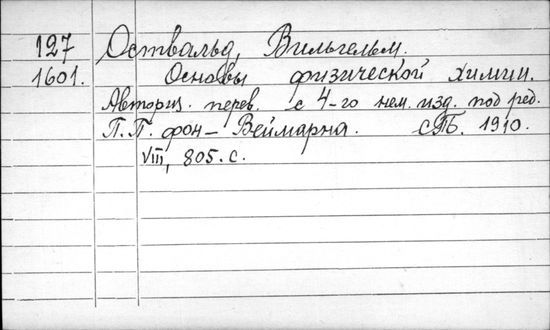 127 Оствальд, Вильгельм.
1601. Основы физической химии.
Авториз. перев. с 4-го нем. изд. под ред.
П. П. фон-Веймарна. СПБ. 1910.
VIII, 805. с.